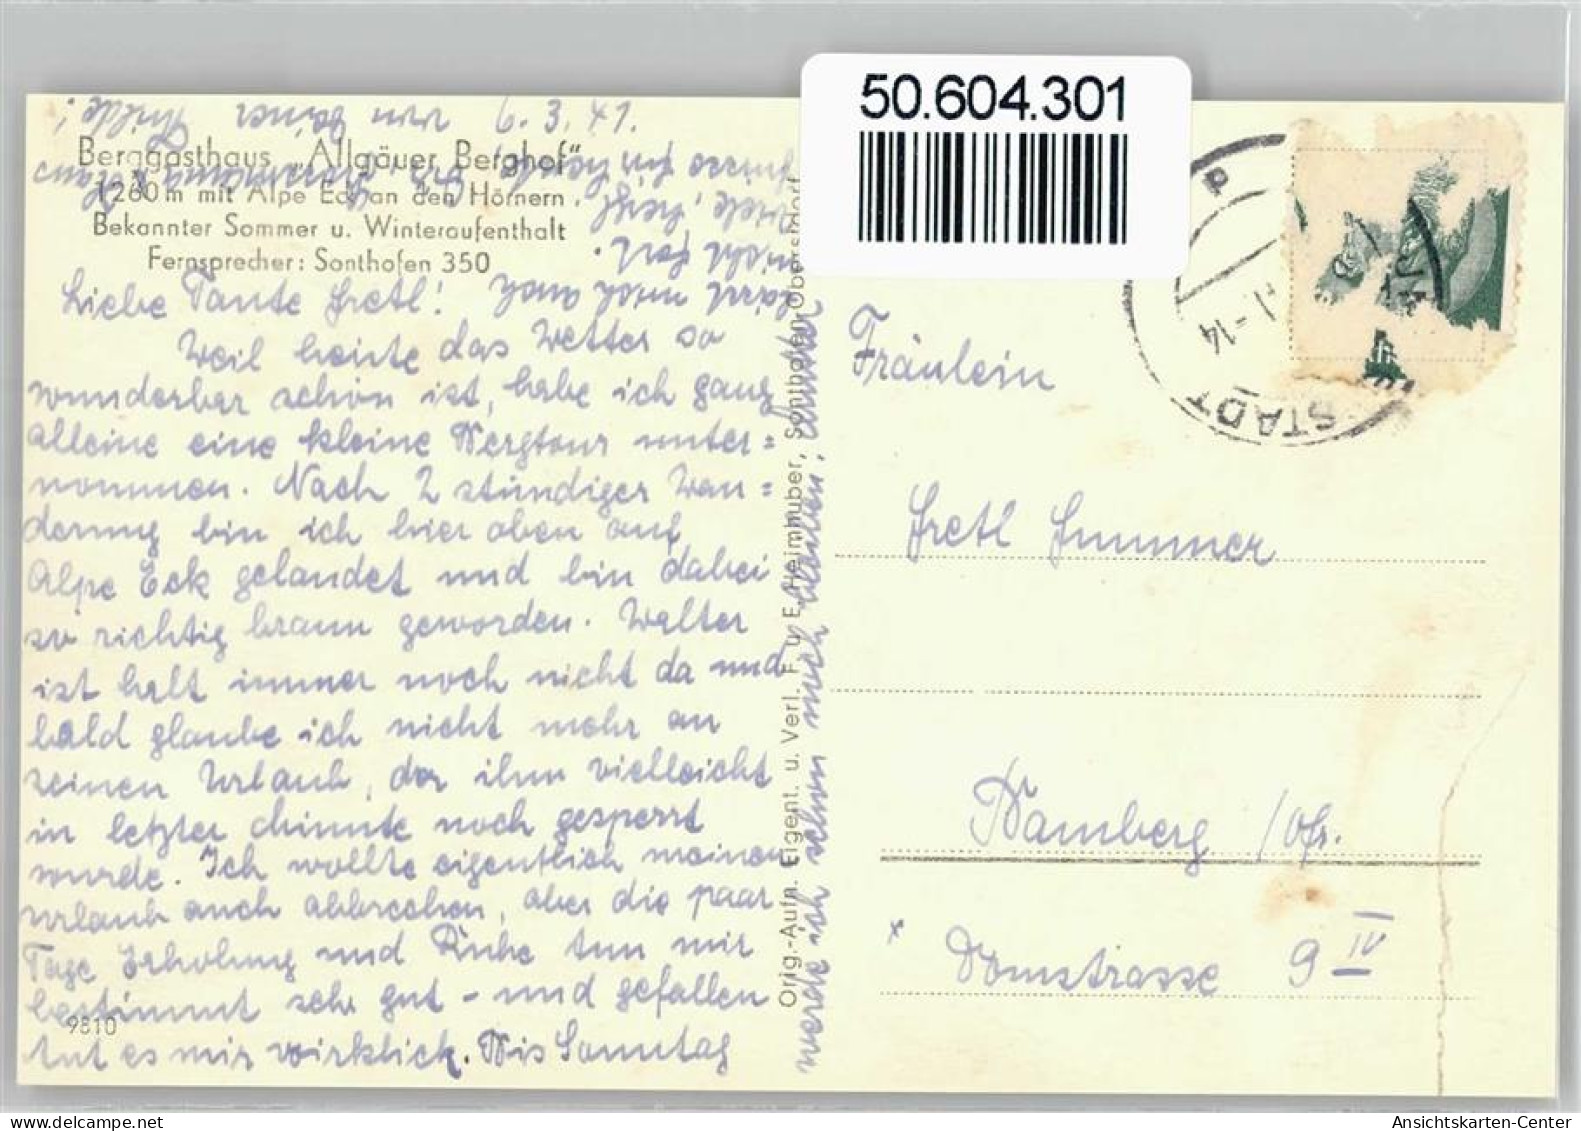 50.604.301
Berggasthaus „Allgäuer Berghof“
1260 m mit Alpe Eck an den Hörnern.
Bekannter Sommer u. Winteraufenthalt
Fernsprecher: Sonthofen 350
Liebe Tante Gretl!
Weil heute das Wetter so
wunderbar schön ist, habe ich ganz
alleine eine kleine Bergtour unter=
nommen. Nach 2 stündiger Wan=
derung bin ich hier oben auf
Alpe Eck gelandet und bin dabei
so richtig braun geworden. Walter
ist halt immer noch nicht da und
bald glaube ich nicht mehr an
seinen Urlaub, der ihm vielleicht
in letzter Minute noch gesperrt
wurde. Ich wollte eigentlich meinen
Urlaub auch abbrechen, aber die paar
Tage Erholung und Ruhe tun mir
bestimmt sehr gut - und gefallen
tut es mir wirklich. Bis Sonntag
werde ich schon noch bleiben,
6.3.41.
von Deiner
9810
Orig.-Aufn. Eigent. u. Verl. F. u. E. Heimhuber, Sonthofen-Oberstdorf
Fräulein
Gretl Summer
Bamberg /Ofr.
x Domstrasse 9 IV
STADT
-14
Ansichtskarten-Center